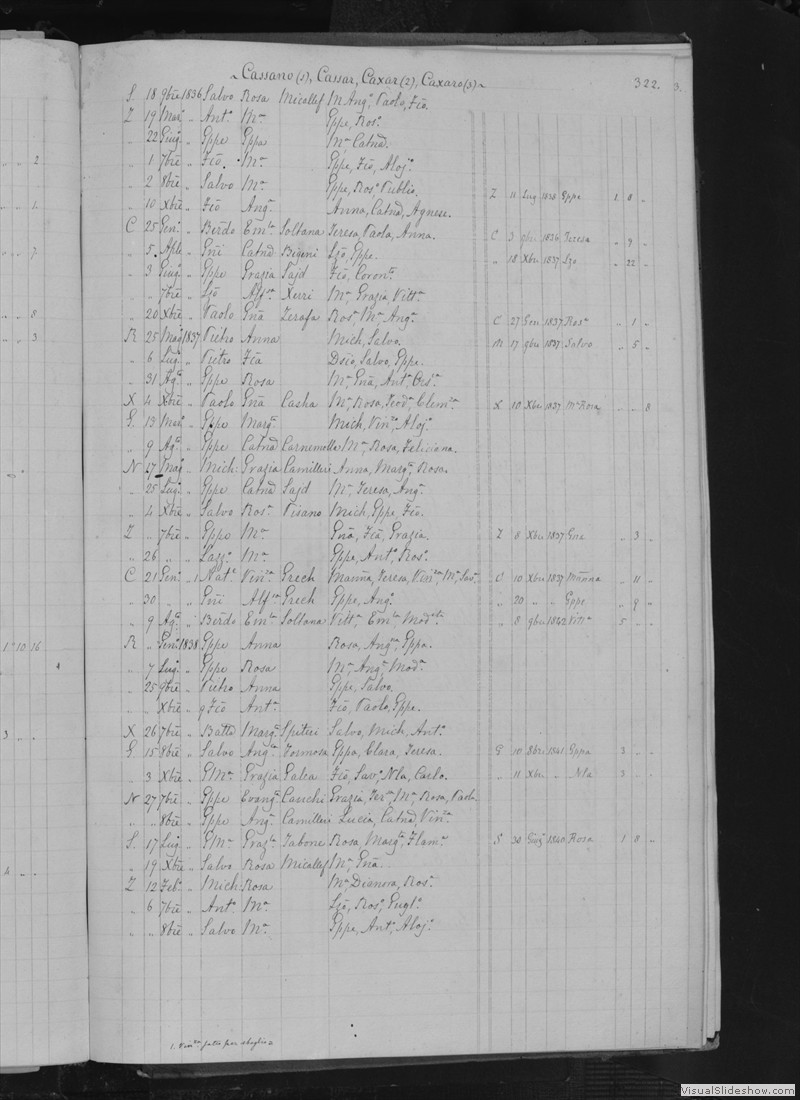 ~ Cassano (1), Cassar, Caxar (2), Caxaro (3) ~ 322. 3.
S. 18 9bre 1836 Salvo Rosa Micallef Mª Angª, Paolo, Fcõ.
Z 19 Marº „ Antº Mª Gppe, Rosª
„ 22 Giugº „ Gppe Gppa Mª Catnã.
„ „ 2 „ 1 7bre „ Fcõ. Mª Gppe, Fcõ, Alojº
„ 2 8bre „ Salvo Mª Gppe, Rosª Publio.
„ „ 1. „ 10 Xbre „ Fcõ Angª Anna, Catnã, Agnese. Z 11 Lug 1838 Gppe 1 8 „
C 25 Genº „ Berdo Emla Soltana Teresa, Paola, Anna. C 3 9bre 1836 Teresa „ 9 „
„ „ 7 „ 5 Aple „ Gñi Catnã Bigeni Lzõ, Gppe. „ 18 Xbre 1837 Lzo „ 22 „
„ 3 Giugº „ Gppe Grazia Sajd Fcõ, Coronª
„ „ 7bre „ Lzõ Alfsa Xerri Mª Grazia, Vittª
„ „ 8 „ 20 Xbre „ Paolo Gñã Zerafa Rosª Mª Angª C 27 Gen 1837 Rosª „ 1 „
„ „ 3 R 25 Magº 1837 Pietro Anna Mich, Salvo. M 17 9bre 1837 Salvo „ 5 „
„ 6 Lugº „ Pietro Fcã Dsio, Salvo, Gppe.
„ 31 Agº „ Gppe Rosa Mª Gñã, Antª
X 4 Xbre „ Paolo Gñã Casha Mª, Rosa, Teodª, Clemza X 10 Xbre 1837 Mª Rosa „ „ 8
G. 13 „ Gppe Margª Mich, Vinzº, Alojº
„ 9 Agº „ Gppe Catnã Carnemolla Mª, Rosa, Feliciana.
N 17 Magº „ Mich Grazia Camilleri Anna, Margª, Rosa.
„ 25 Lugº „ Gppe Catnã Sajd Mª, Teresa, Angª
„ 4 Xbre „ Salvo Rosª Pisano Mich, Gppe, Fcõ.
Z „ 7bre „ Gppe Mª Gñã, Fcã, Grazia. Z 8 Xbre 1837 Gna „ 3 „
„ 26 „ „ Lazzº Mª Gppe, Antº, Rosº
C 21 Genº „ 1 Natle Vinza Grech Marñna, Teresa, Vinza, Mª, Savª C 10 Xbre 1837 Marñna „ 11 „
„ 30 „ „ Gñi Alfsa Grech Gppe, Angº „ 20 „ „ Gppe „ 9 „
„ 9 Agº „ Berdo Emla Soltana Vittª Emla Modsta „ 8 9bre 1842 Vittª 5 „ „
1 10 16 R „ Genº 1838 Gppe Anna Rosa, Angª, Gppa.
„ 7 Lugº „ Gppe Rosa Mª Angª Modª
„ 25 9bre „ Pietro Anna Gppe, Salvo.
„ „ Xbre „ 9 Fcõ Antª Fcõ, Paolo, Gppe.
3 „ „ X 26 7bre „ Batta Margª Spiteri Salvo, Mich, Antº
G. 15 8bre „ Salvo Angla Formosa Gppa, Clara, Teresa. G 10 8bre 1841 Gppa 3 „ „
„ 3 Xbre „ GMª Grazia Galea Fcõ, Savº, Nla, Carlo. „ 11 Xbre „ Nla 3 „ „
N 27 7bre „ Gppe Evangª Caruchi Grazia, Terª, Mª, Rosa, Paola
„ „ 8bre „ Gppe Angª Camilleri Lucia, Catnã, Vinza
S. 17 Lugº „ GMª Grazla Tabone Rosa, Margta, Flamª S 30 Giugº 1840 Rosa 1 11 „
4 „ „ „ 19 Xbre „ Salvo Rosa Micallef Mª, Gñã.
Z 12 Febº „ Mich Rosa Mª Dianora, Rosª
„ 6 7bre „ Antº Mª Lzõ, Rosª, Euglº
„ „ 8bre „ Salvo Mª Gppe, Antº, Alojº
1. Vinza fatta per sbaglio
VisualSlideshow.com